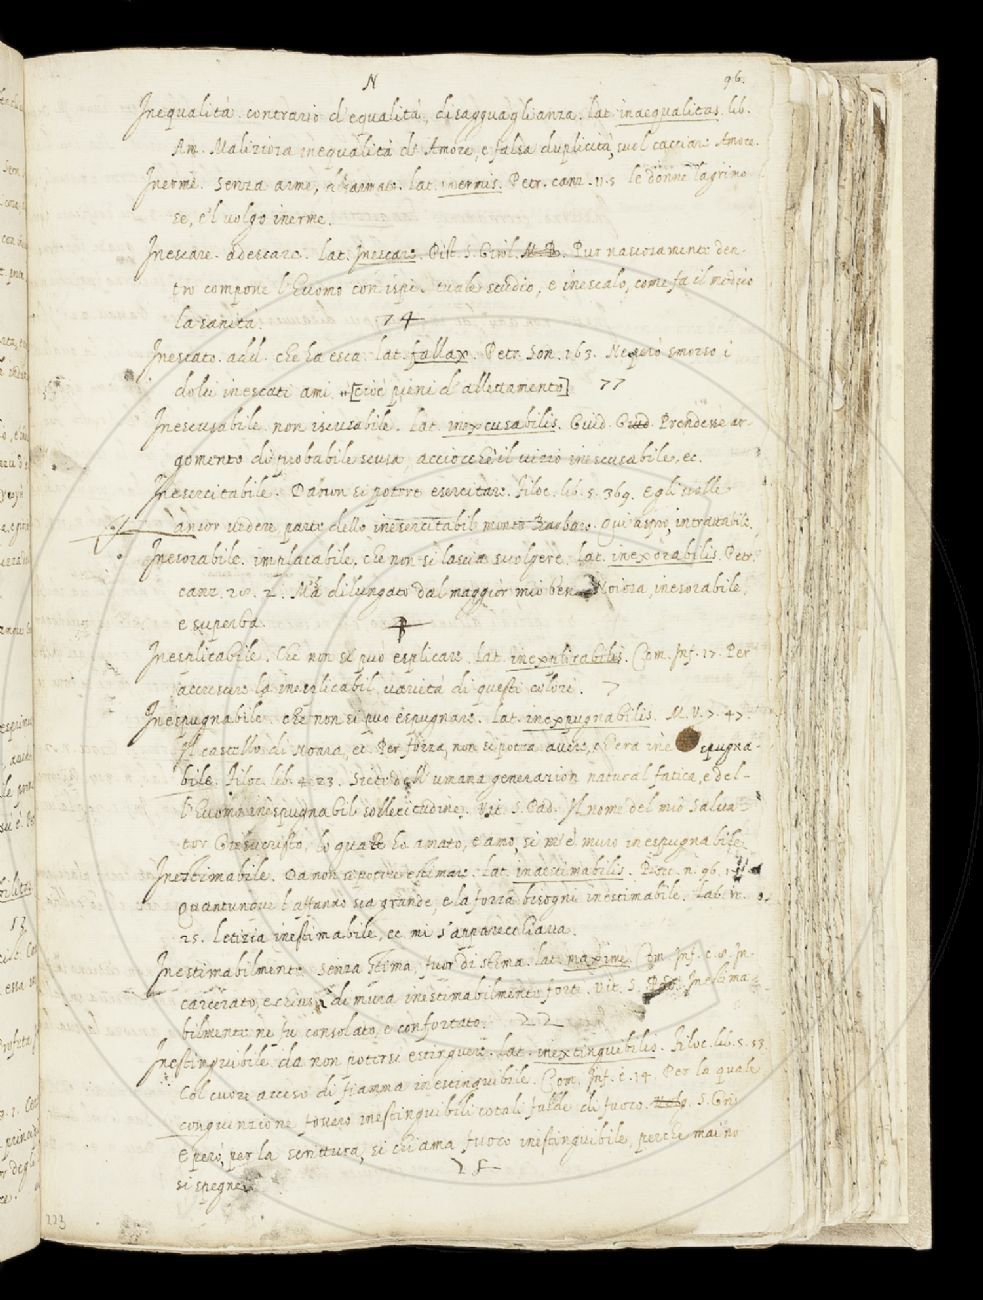 N
96.
Inequalità. contrario d'equalità, disagguaglianza. lat. inaequalitas. lib.
Am. Maliziosa inequalità di Amore, e falsa duplicità, suol cacciare Amore.
Inerme. Senza arme, disarmato. lat. inermis. Petr. canz. v.5 le donne lagrimo
se, e'l volgo inerme.
Inescare. adescare. lat. Inescare. Pist. S. Girol. M.B. Pur dentro
tro compone l'Huomo con studio, e inescalo, come fa il medico
la sanità.
74
Inescato. add. che ha esca. lat. fallax. Petr. Son. 163. Ne però smorso i
dolci inescati ami [cioè pieni d'allettamento] 77
Inescusabile. non iscusabile. lat. inexcusabilis. Guid. Guid. Prendesse ar-
gomento di probabile scusa, acciocche il vizio inescusabile, ec.
Inesercitabile. Da non si potere esercitare. Filoc. lib. 5. 369. Egli volle
ancor vedere parte dello inesercitabil monte Barbaro. Qui aspro, intrattabile.
Inesorabile. implacabile, che non si lascia svolgere. lat. inexorabilis. Petr.
canz. Ma dilungato dal maggior mio ben Noiosa, inesorabile,
e superba.
Inesplicabile. Che non si può esplicare. lat. inexplicabilis. Com. Inf. 17. Per
accusare la inesplicabil varietà di questi colori. 7
Inespugnabile. che non si può espugnare. lat. inexpugnabilis. M. V. 7. 47.
Il castello di Novara, ec. Per forza, non si potea avere, ch'era ine spugna-
bile. Filoc. lib. 4. 23. Siete dell'umana generazion natural fatica, e del-
l'Huomo inespugnabil sollecitudine. Vit. S. Pad. Il nome del mio Salva
tor Giesucristo, lo quale ho amato, e amo, si m'è muro inespugnabile.
Inestimabile. Da non si potere estimare. lat. inaestimabilis. Bocc. n. 96.
Quantunque l'affanno sia grande, e la forza bisogni inestimabile. Lab. n.
25. Letizia inestimabile, ec mi s'apparecchiava.
Inestimabilmente. Senza stima, fuor di stima. lat. maxime. Com. Inf. c. 8. In-
carcerato, e chiuso di mura inestimabilmente forti. Vit. S. Pad. Inestima-
bilmente ne fu consolato, e confortato. 22
Inestinguibile. da non potersi estinguere. lat. inextinguibilis. Filoc. lib. 5. 53.
Col cuore acceso di fiamma inestinguibile. Com. Inf. c. 14. Per la quale
congiunzione fossero inestinguibili cotali falde di fuoco. S. Gri
E però, per la scrittura, si chiama fuoco inestinguibile, perche mai no
si spegne.
223